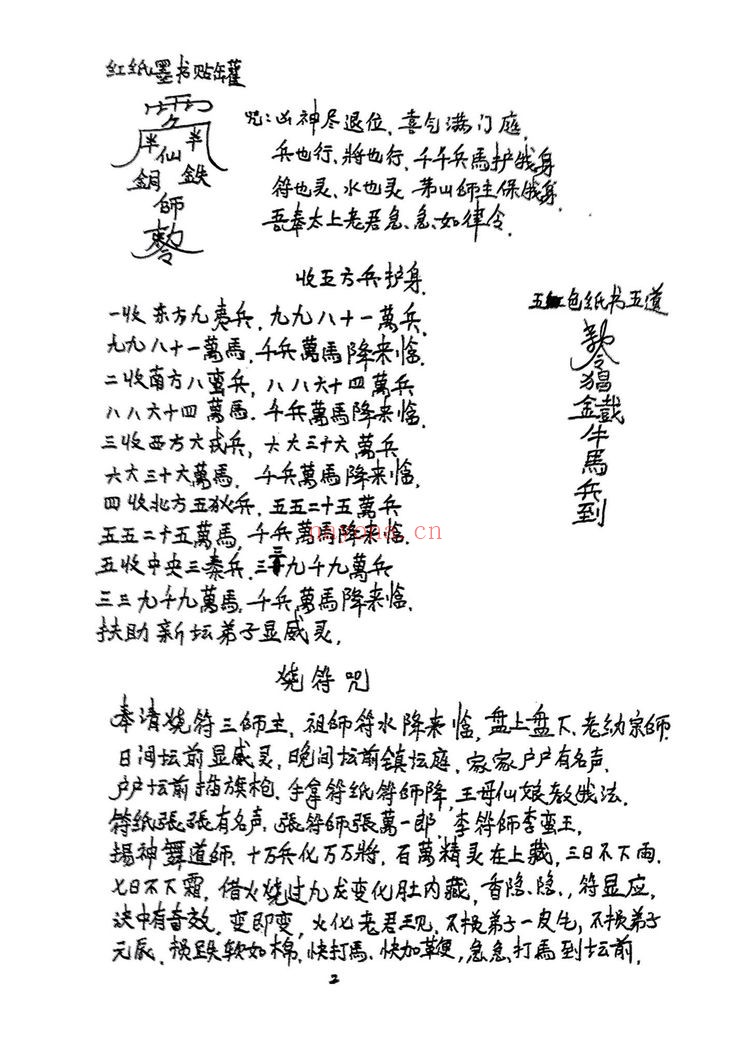 红纸墨书贴罐
雨
半 半
仙
師
敕令
咒:凶神尽退位、喜气满门庭、
兵也行、將也行、千千兵馬护我身
符也灵、水也灵 茅山師主保我身、
吾奉太上老君急、急、如律令、
收五方兵护身、
一收东方九夷兵,九九八十一萬兵、
九九八十一萬馬,千兵萬馬降来临、
二收南方八蛮兵,八八六十四萬兵
八八六十四萬馬、千兵萬馬降来临、
三收西方六戎兵,六六三十六萬兵
六六三十六萬馬、千兵萬馬降来临、
四收北方五狄兵、五五二十五萬兵
五五二十五萬馬,千兵萬馬降来临、
五收中央三秦兵、三三九千九萬兵
三三九千九萬馬、千兵萬馬降来临、
扶助新坛弟子显威灵、
五 包纸书五道
敕令猖
金戠
牛
馬
兵
到
烧符咒
奉请烧符三師主、祖師符水降来临、盘上盘下、老幼宗師、
日间坛前显威灵,晚间坛前鎮坛庭、家家户户有名声、
户户坛前插旗枪、手拿符纸符師降,王母仙娘教我法、
符纸張張有名声、張符師張萬一郎、李符師李蛮王、
揚神舞道師、十万兵化万万將、百萬精灵在上藏、三日不下雨、
七日不下霜、借火烧过九龙变化肚内藏、香隐、隐、,符显应、
诀中有音效、变即变、火化老君王现、不損弟子一皮毛,不損弟子
元辰、損跌软如棉、快打馬、快加鞭,急急打馬到坛前、
2
nayona.cn